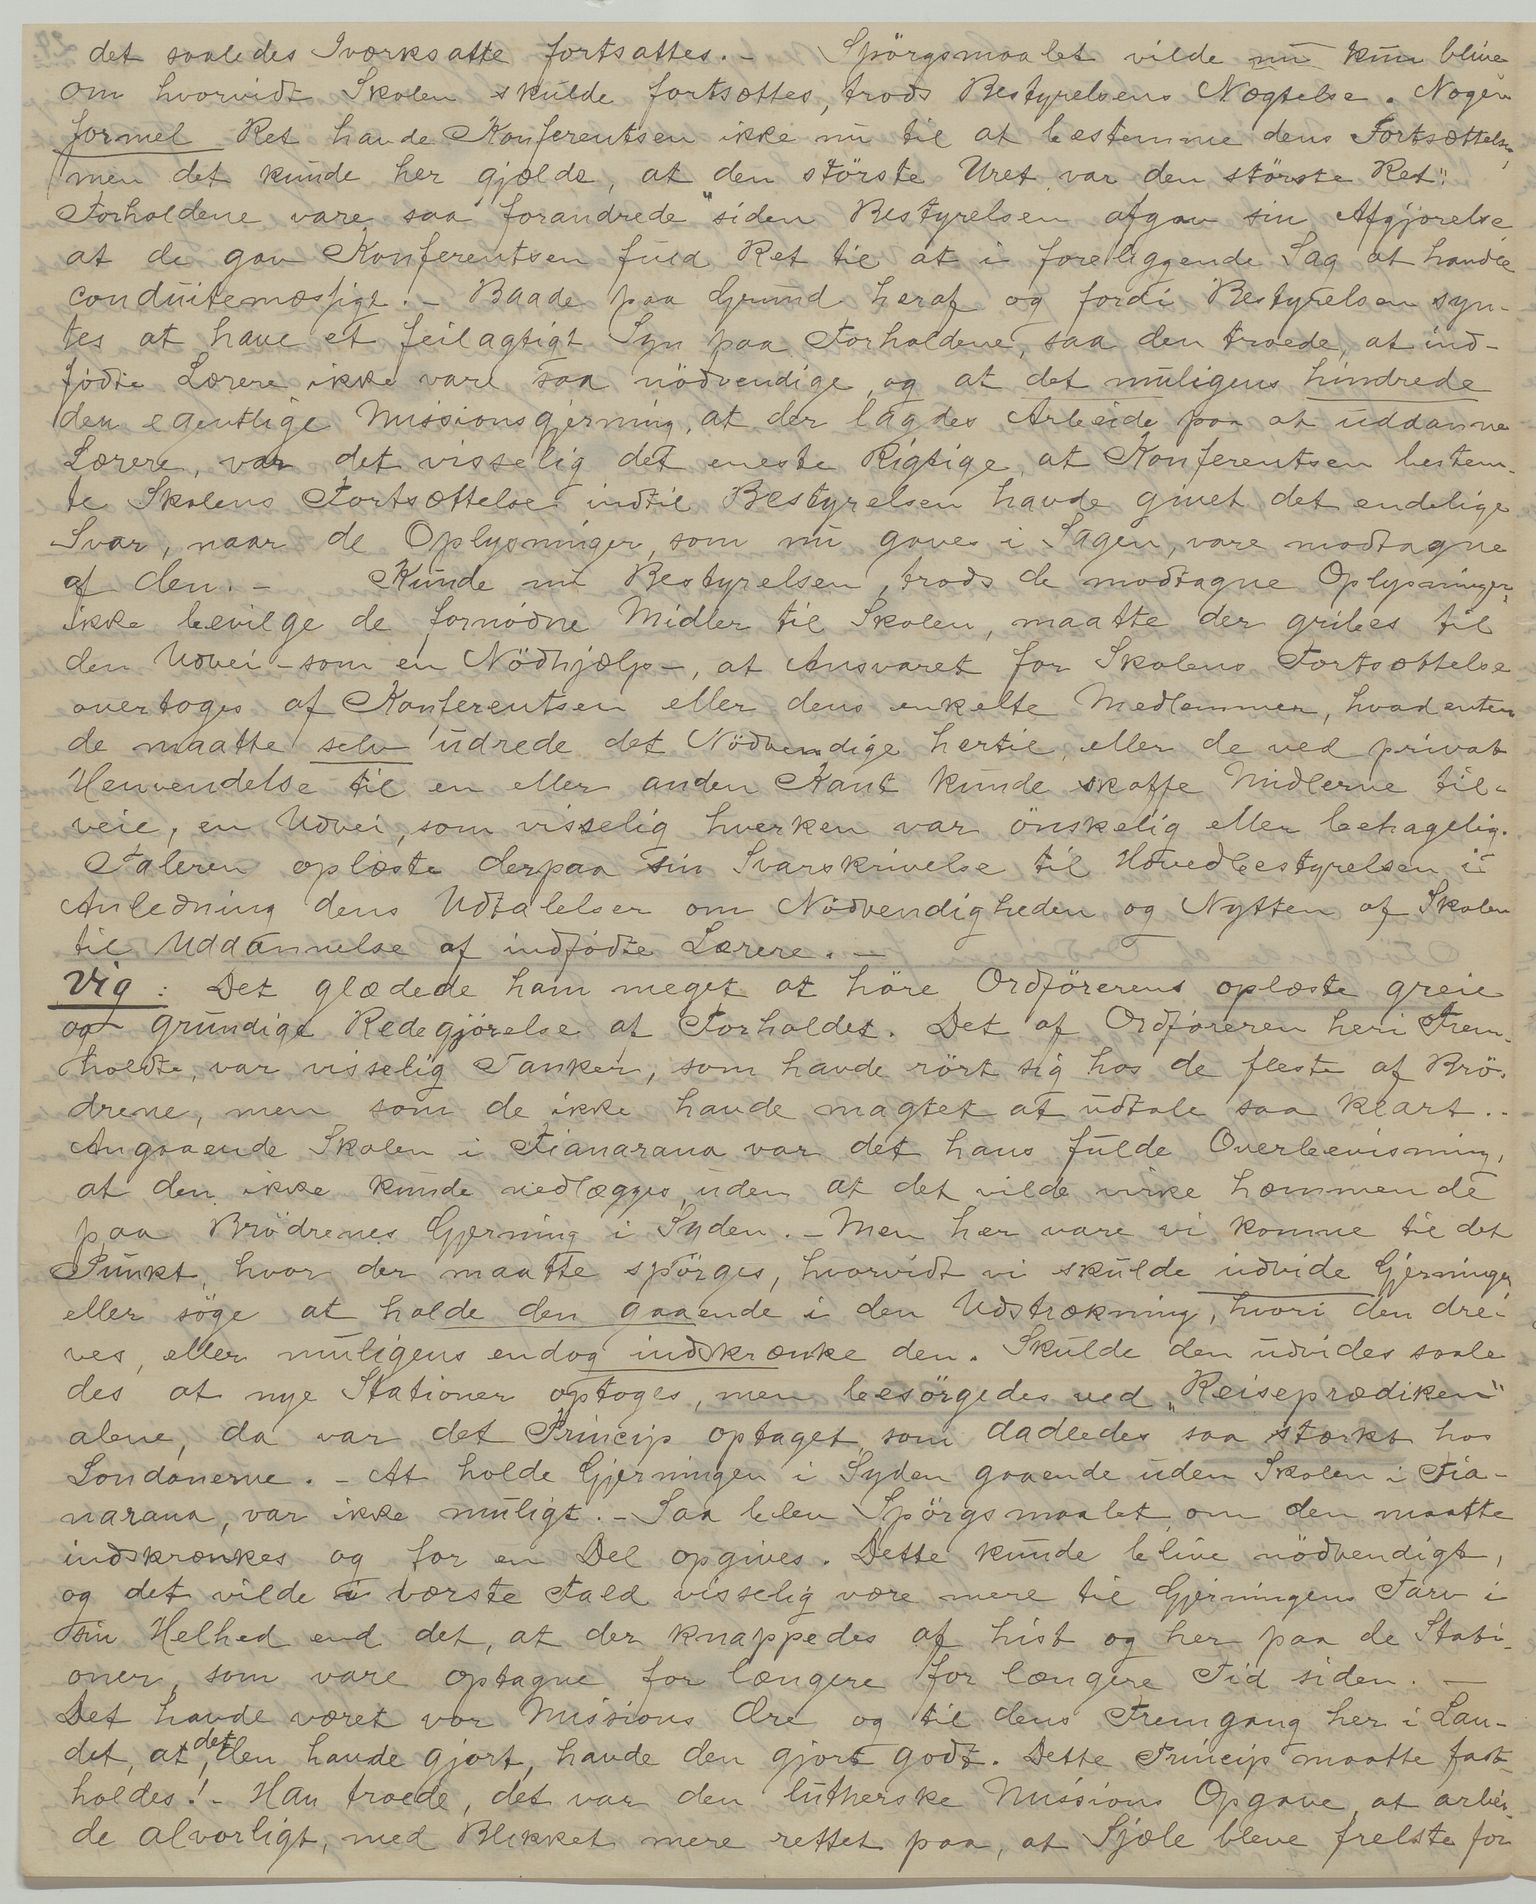 det saaledes Iværksatte fortsattes. - Spörgsmaalet vilde nu kun blive
om hvorvidt Skolen skulde fortsættes, trods Bestyrelsens Nægtelse. Nogen
formel Ret havde Konferentsen ikke nu til at bestemme dens Fortsættelse,
men det kunde her gjælde, at "den störste Uret var den störste Ret".
Forholdene vare saa forandrede siden Bestyrelsen afgav sin Afgjörelse,
at de gav Konferentsen fuld Ret til at i foreliggende Sag at handle
conduitemæssigt. - Baade paa Grund heraf og fordi Bestyrelsen syn-
tes at have et feilagtigt Syn paa Forholdene, saa den troede, at ind-
födte Lærere ikke vare saa nödvendige og at det muligens hindrede
den egentlige Missionsgjerning, at der lagdes Arbeide paa at uddanne
Lærere, var det visselig det eneste Rigtige, at Konferentsen bestem-
te Skolens Fortsættelse indtil Bestyrelsen havde givet det endelige
Svar, naar de Oplysninger, som nu gaves i Sagen, vare modtagne
af den. - Kunde nu Bestyrelsen, trods de modtagne Oplysninger,
ikke bevilge de fornödne Midler til Skolen, maatte der gribes til
den Udvei - som en Nödhjælp -, at Ansvaret for Skolens Fortsættelse
overtoges af Konferentsen eller dens enkelte Medlemmer, hvad enten
de maatte selv udrede det Nödvendige hertil, eller de ved privat
Henvendelse til en eller anden Kant kunde skaffe Midlerne til-
veie, en Udvei, som visselig hverken var önskelig eller behagelig.
Taleren oplæste derpaa sin Svarskrivelse til Hovedbestyrelsen i
Anledning dens Udtalelser om Nödvendigheden og Nytten af Skolen
til Uddannelse af indfödte Lærere. -
Vig: Det glædede ham meget at höre Ordförerens oplæste greie
og grundige Redegjörelse af Forholdet. Det af Ordföreren heri Frem-
holdte, var visselig Tanker, som havde rört sig hos de fleste af Brö-
drene, men som de ikke havde magtet at udtale saa klart..
Angaaende Skolen i Fianarana var det hans fulde Overbevisning,
at den ikke kunde nedlægges, uden at det vilde virke hæmmende
paa Brödrenes Gjerning i Syden. - Men her vare vi komne til det
Punkt, hvor der maatte spörges, hvorvidt vi skulde udvide Gjerningen
eller söge at holde den gaaende i den Udstrækning, hvori den drei-
ves, eller muligens endog indskrænke den. Skulde den udvides saale
des at nye Stationer optoges, men besörgedes ved „Reiseprædiken"
alene, da var det Princip optaget, som dadledes saa stærkt hos
Londonerne. - At holde Gjerningen i Syden gaaende uden Skolen i Fia-
narana, var ikke muligt. - Saa blev Spörgsmaalet, om den maatte
indskrænkes og for en Del opgives. Dette kunde blive nödvendigt,
og det vilde i værste Fald visselig være mere til Gjerningens Tarv i
sin Helhed end det, at der knappedes af hist og her paa de Stati-
oner, som vare optagne for længere for længere Tid siden. -
Det havde været vor Missions Ære og til dens Fremgang her i Lan-
det, at det den havde gjort, havde den gjort godt. Dette Princip maatte fast-
holdes! - Han troede, det var den lutherske Missions Opgave, at arbei-
de alvorligt, med Blikket mere rettet paa, at Sjæle bleve frelste for